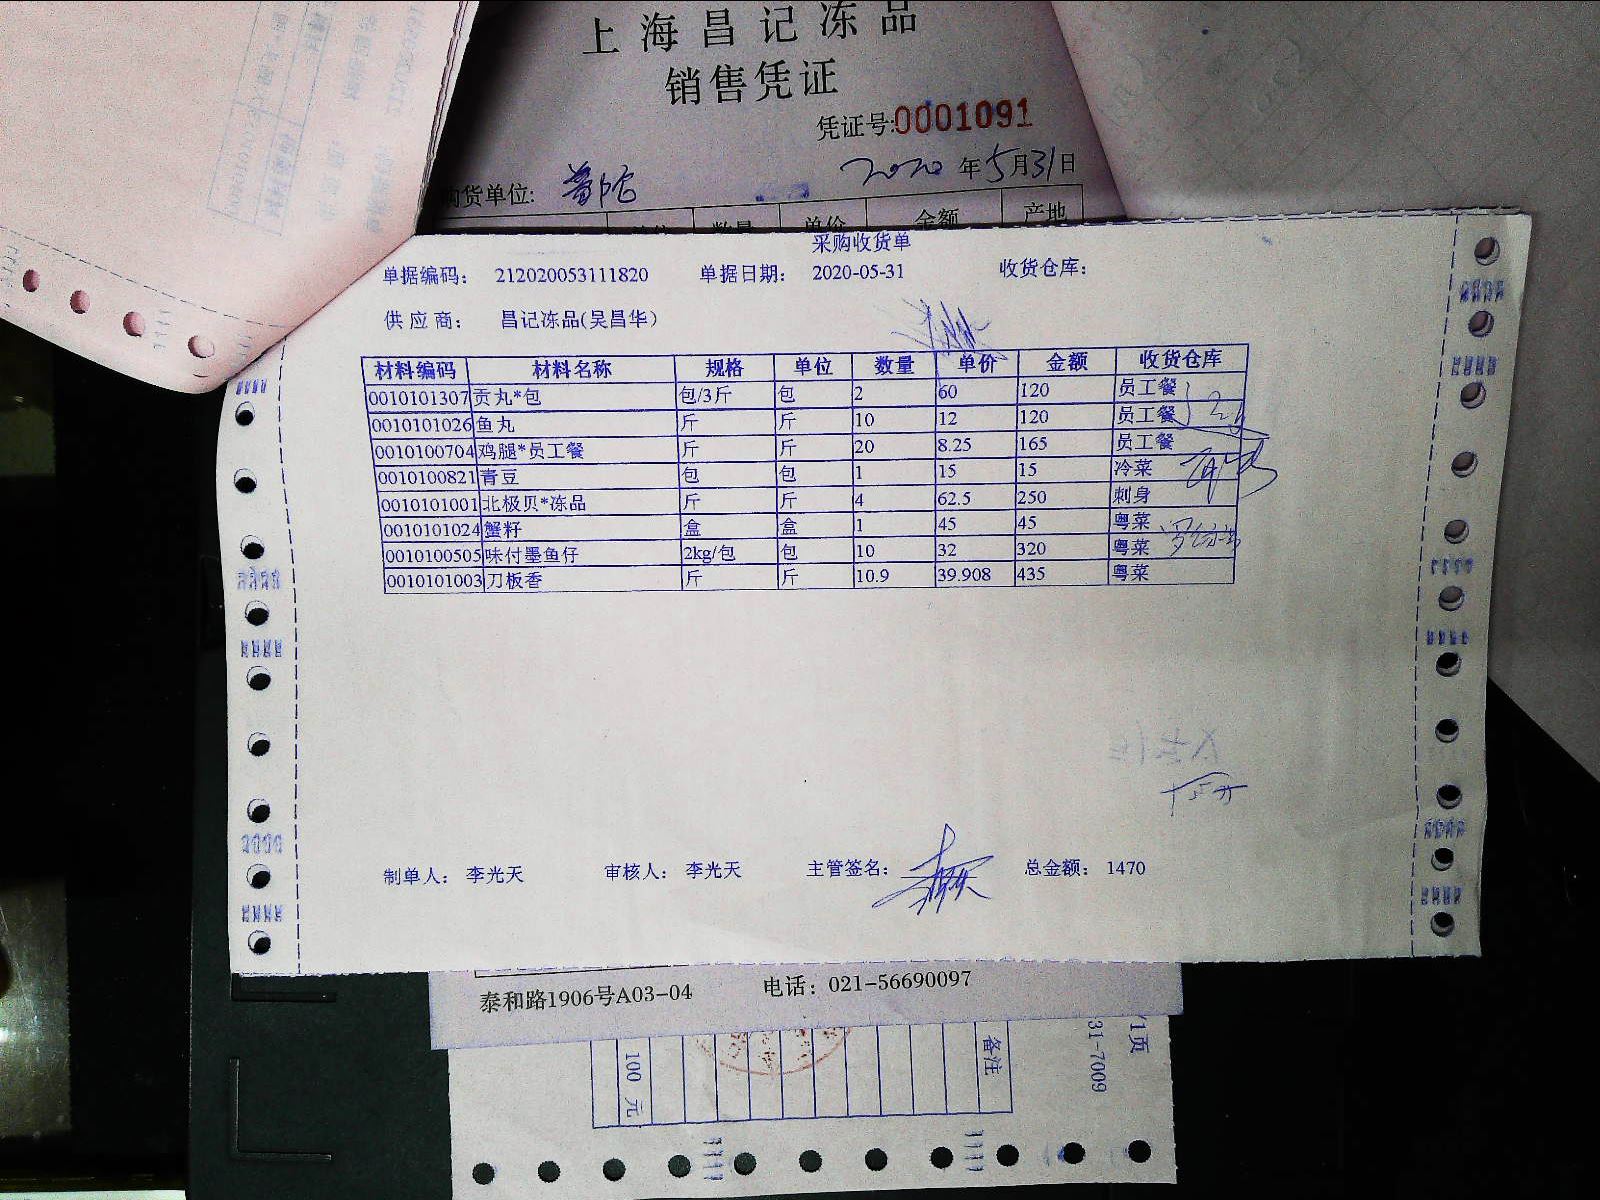 上海昌记冻品
销售凭证
凭证号:0001091
2020年5月31日
购货单位: 普陀
数量 单价 金额 产地
采购收货单
单据编码: 212020053111820 单据日期: 2020-05-31 收货仓库:
供应商: 昌记冻品(吴昌华)
材料编码 材料名称 规格 单位 数量 单价 金额 收货仓库
0010101307 贡丸*包 包/3斤 包 2 60 120 员工餐
0010101026 鱼丸 斤 斤 10 12 120 员工餐
0010100704 鸡腿*员工餐 斤 斤 20 8.25 165 员工餐
0010100821 青豆 包 包 1 15 15 冷菜
0010101001 北极贝*冻品 斤 斤 4 62.5 250 刺身
0010101024 蟹籽 盒 盒 1 45 45 粤菜
0010100505 味付墨鱼仔 2kg/包 包 10 32 320 粤菜
0010101003 刀板香 斤 斤 10.9 39.908 435 粤菜
制单人: 李光天 审核人: 李光天 主管签名: 总金额: 1470
泰和路1906号A03-04 电话: 021-56690097
备注
100 元
31-7009
/1页